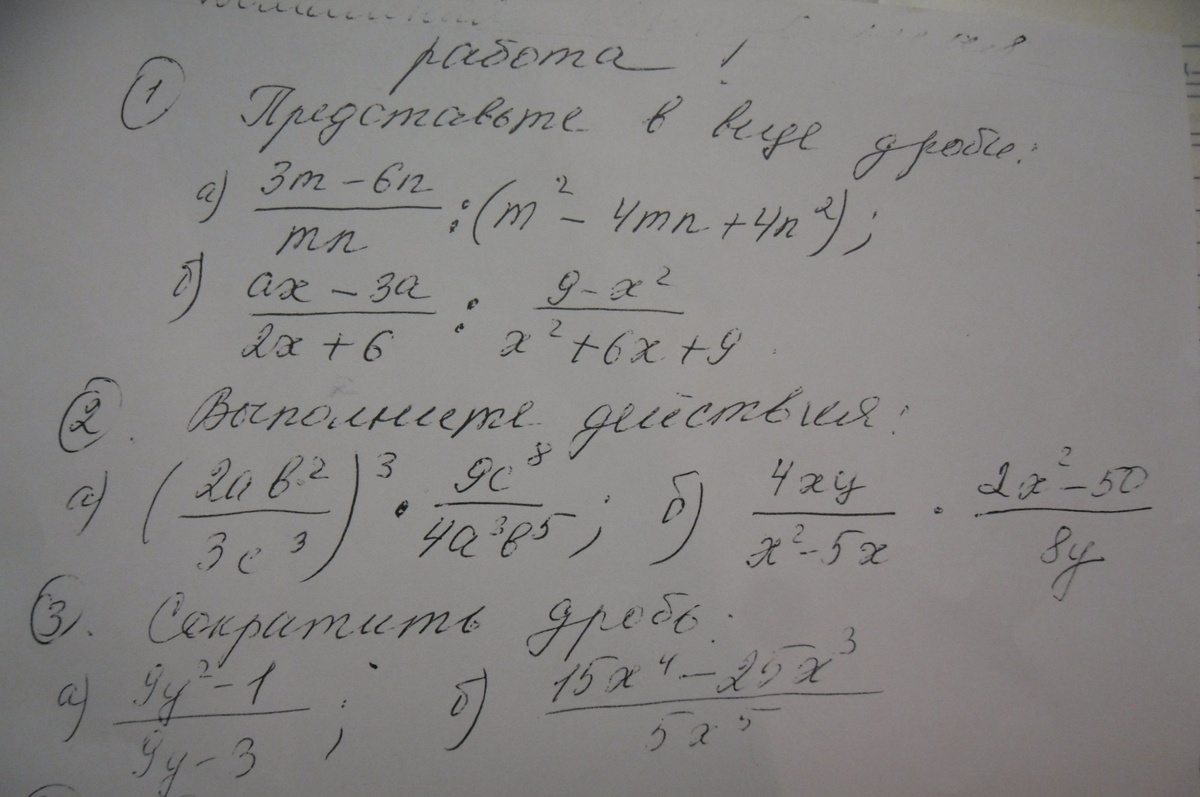 работа !
① Представьте в виде дроби:
а) (3m - 6n)/(mn) : (m² - 4mn + 4n²);
б) (ax - 3a)/(2x + 6) : (9 - x²)/(x² + 6x + 9)
② . Выполните действия:
а) (2ab²/3c³)³ · 9c⁸/(4a³b⁵) ; б) 4xy/(x² - 5x) · (2x² - 50)/8y
③ . Сократить дробь:
а) (9y² - 1)/(9y - 3) ; б) (15x⁴ - 25x³)/5x⁵